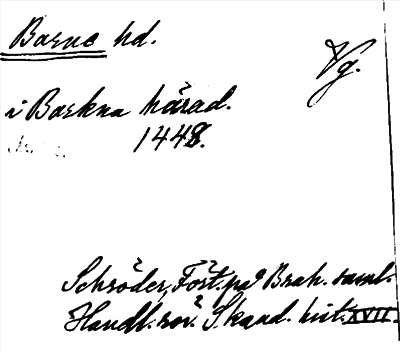 Barne hd.
Vg.
i Barkna härad.
1448.
Schröder, Fört. på Brah. saml.
Handl. rör. Skand. hist. XVII.